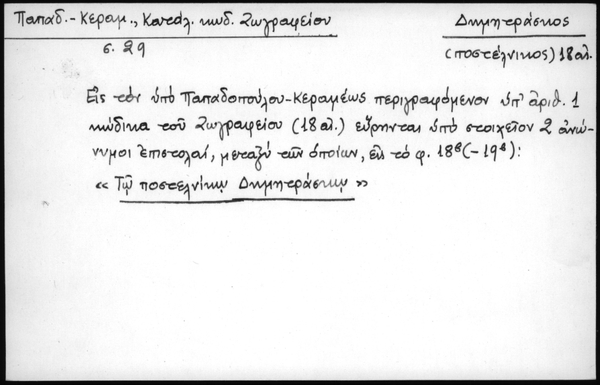 Παπαδ.-Κεραμ., Κατάλ. κωδ. Ζωγραφείου
Δημητράσκος
σ. 29
(ποστέλνικος) 18 αἰ.
Εἰς τὸν ὑπὸ Παπαδοπούλου-Κεραμέως περιγραφόμενον ὑπ' ἀριθ. 1
κώδικα τοῦ Ζωγραφείου (18 αἰ.) εὕρηνται ὑπὸ στοιχεῖον 2 ἀνώ-
νυμοι ἐπιστολαί, μεταξὺ τῶν ὁποίων, εἰς τὸ φ. 18β(-19β):
« Τῷ ποστελνίκῳ Δημητράσκῳ »